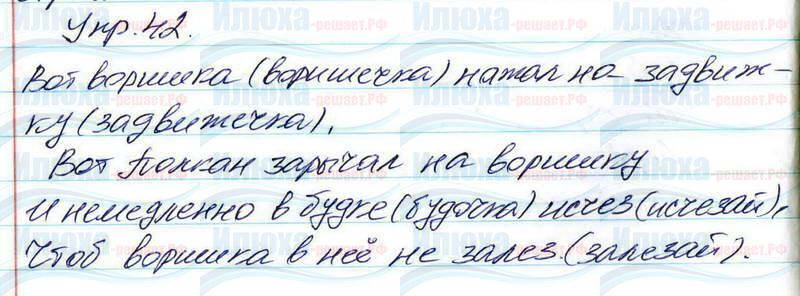 Упр. 42.
Вот воришка (воришечка) нажал на задвиж-
ку (задвижечка),
Вот Полкан зарычал на воришку
И немедленно в будке (будочка) исчез (исчезай),
Чтоб воришка в неё не залез. (залезай).